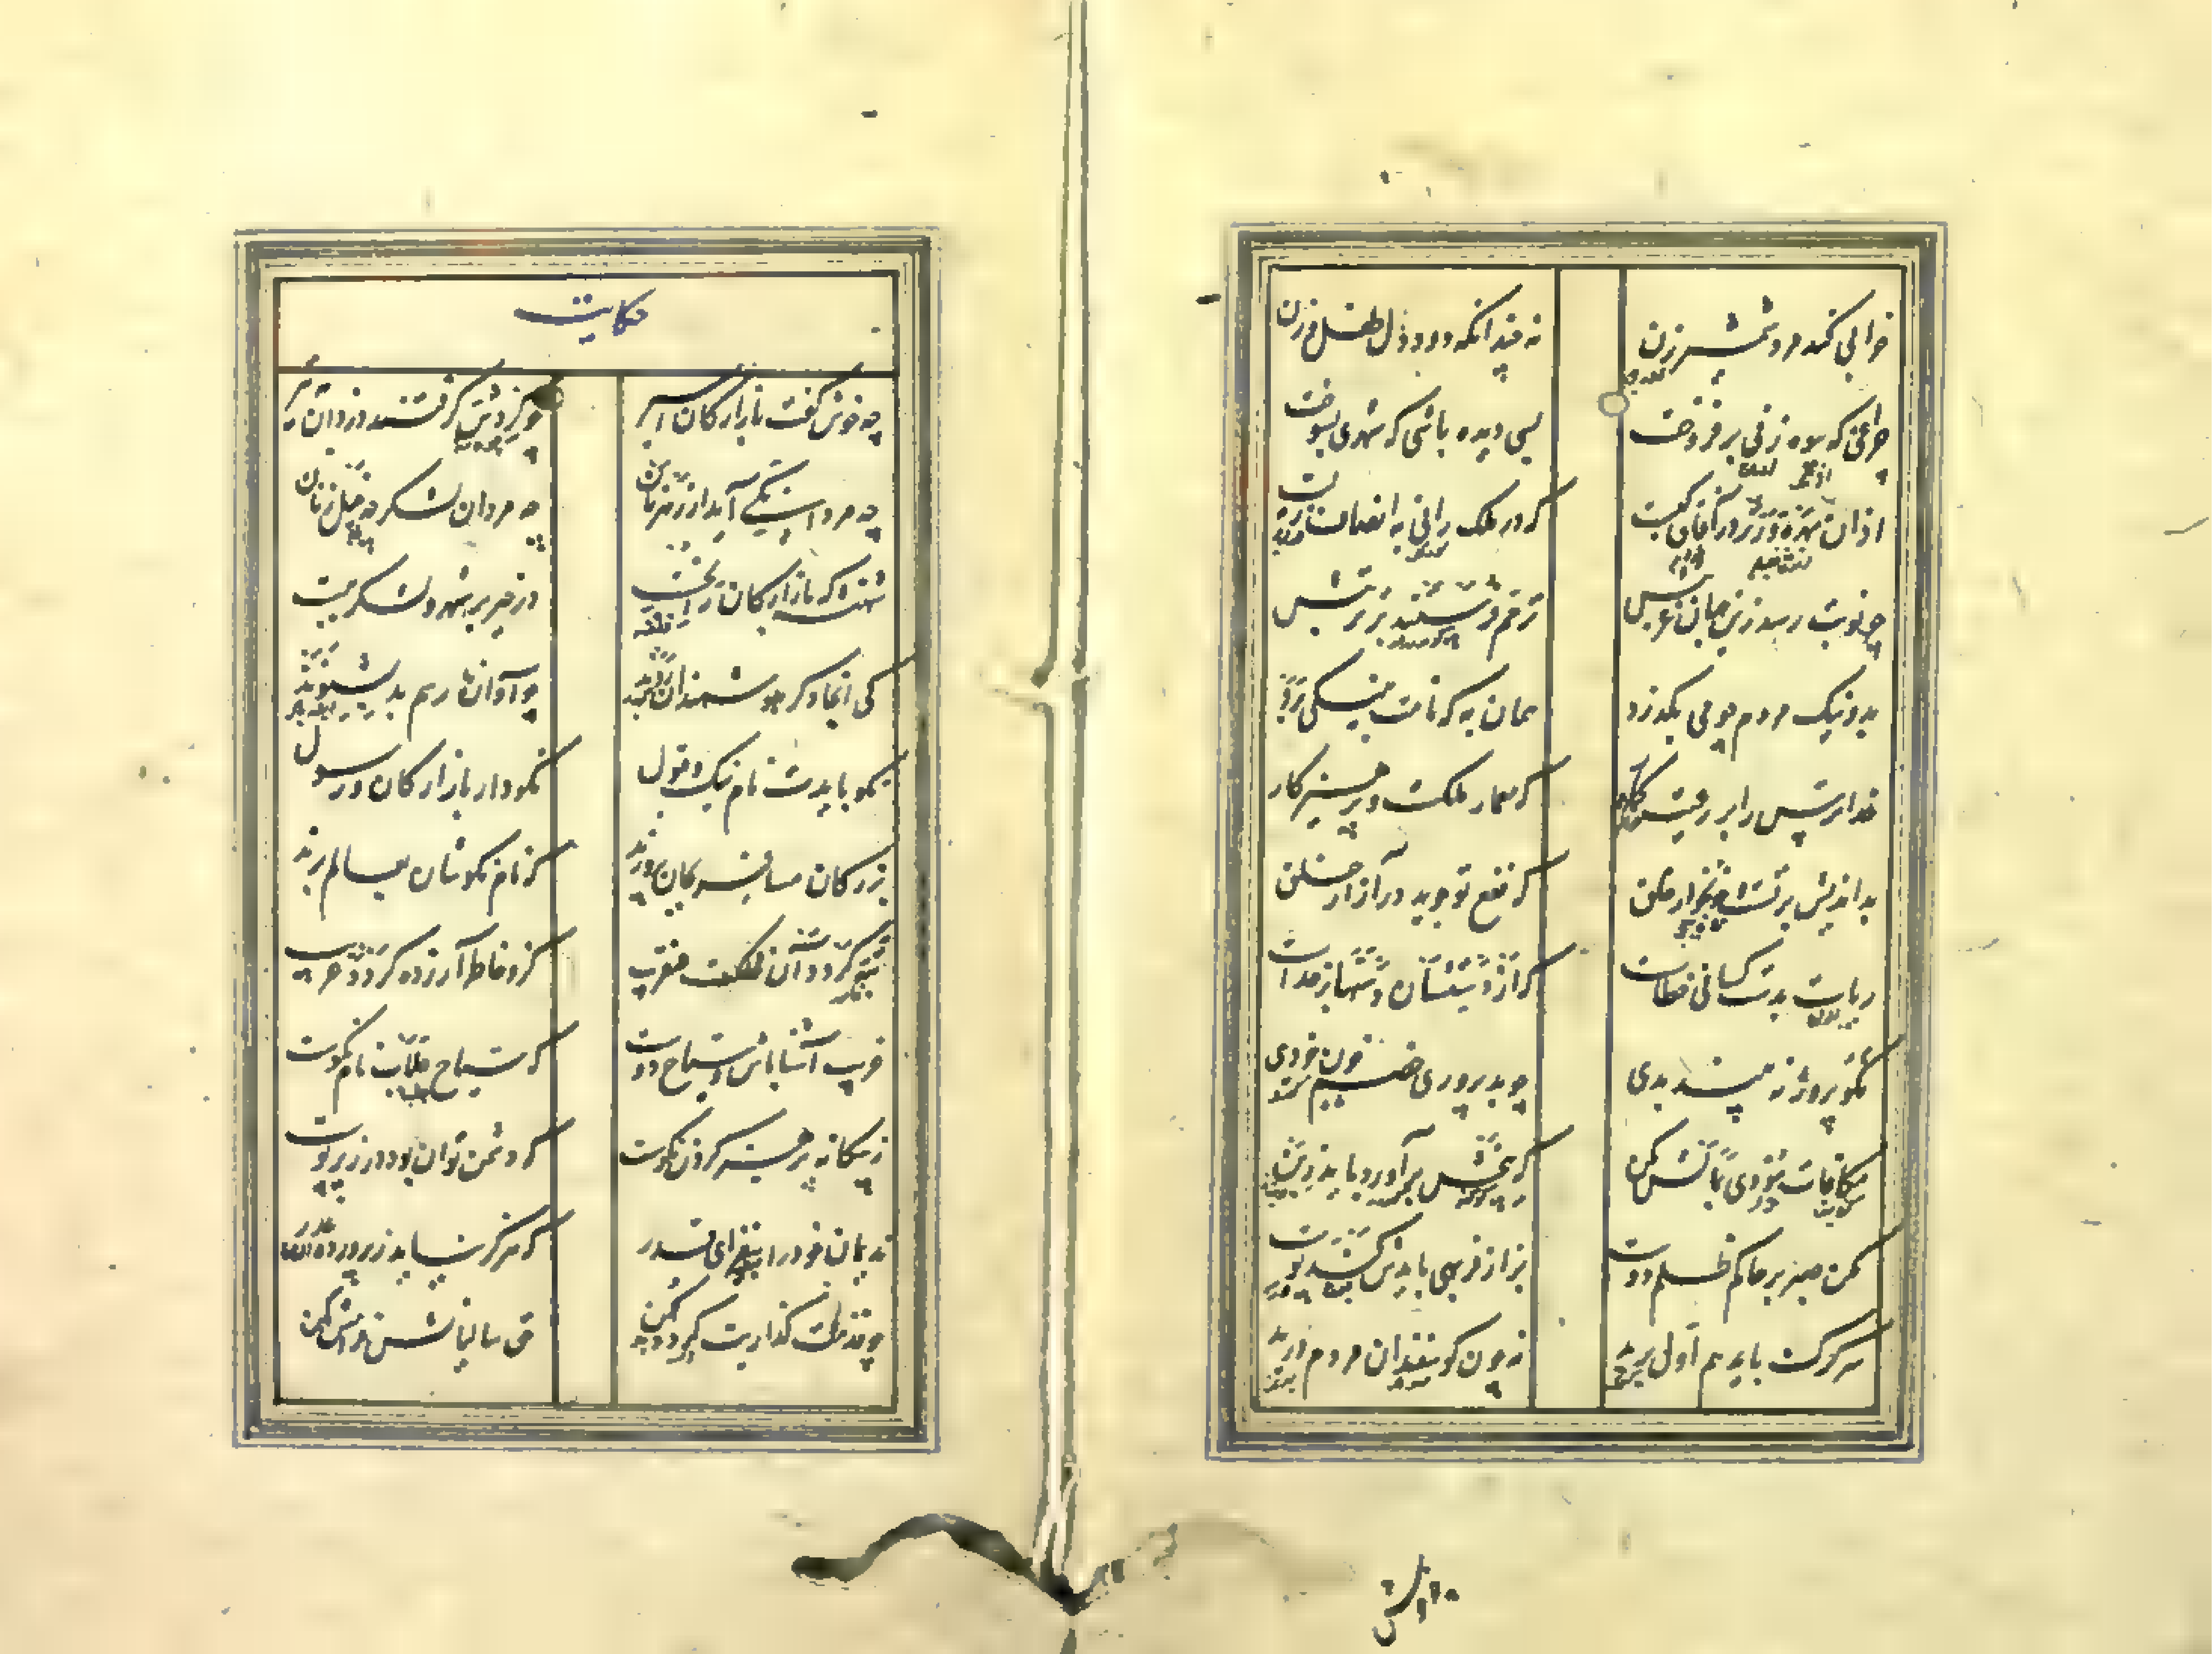 خرابی کند مرد شمشیر زن نه چندانکه دود دل طفل و زن
چراغی که بیوه زنی برفروخت بسی دیده باشی که شهری بسوخت
ازان بهره ورتر در آفاق کیست که در ملک رانی به انصاف زیست
چو نوبت رسد زین جهان غربتش ترحم فرستند بر تربتش
بد و نیک مردم چو می بگذرد همان به که نامت به نیکی برد
خدا ترس را بر رعیت گمار که معمار ملکست پرهیزکار
بد اندیش تست و خونخوار خلق که نفع تو جوید در آزار خلق
ریاست بدست کسانی خطاست که از دستشان دستها بر خداست
نکو پرور نه بیند بدی چو بد پروری خصم خون خودی
مکافات موذی بمالش مکن که بیخش برآورد باید ز بن
مکن صبر بر حاکم ظلم دوست از فربهی بایدش کند پوست
سر گرگ باید هم اول برید نه چون گوسفندان مردم درید
حکایت
چه خوش گفت بازارگان اسیر چو گردش گرفتند دزدان بتیر
چو مردانگی آید از رهزنان چه مردان لشکر چه خیل زنان
شهنشه که بازارگان را بخست در خیر بر شهر و لشکر ببست
کی آنجا دگر هوشمندان روند چو آوازه رسم بد بشنوند
نکو بایدت نام نیک و قبول نکو دار بازارگان و رسول
بزرگان مسافر بجان پرورند که نام نکوشان بعالم برند
تبه گردد آن مملکت عنقریب کزو خاطر آزرده گردد غریب
غریب آشنا باش و سیاح دوست که سیاح جلاب نام نکوست
ز بیگانه پرهیز کردن نکوست که دشمن توان بود در زی دوست
ندیمان خود را بیفزای قدر که هرگز نیاید ز پرورده غدر
چو خدمت گذاریت گردد کهن حق سالیانش فرامش مکن